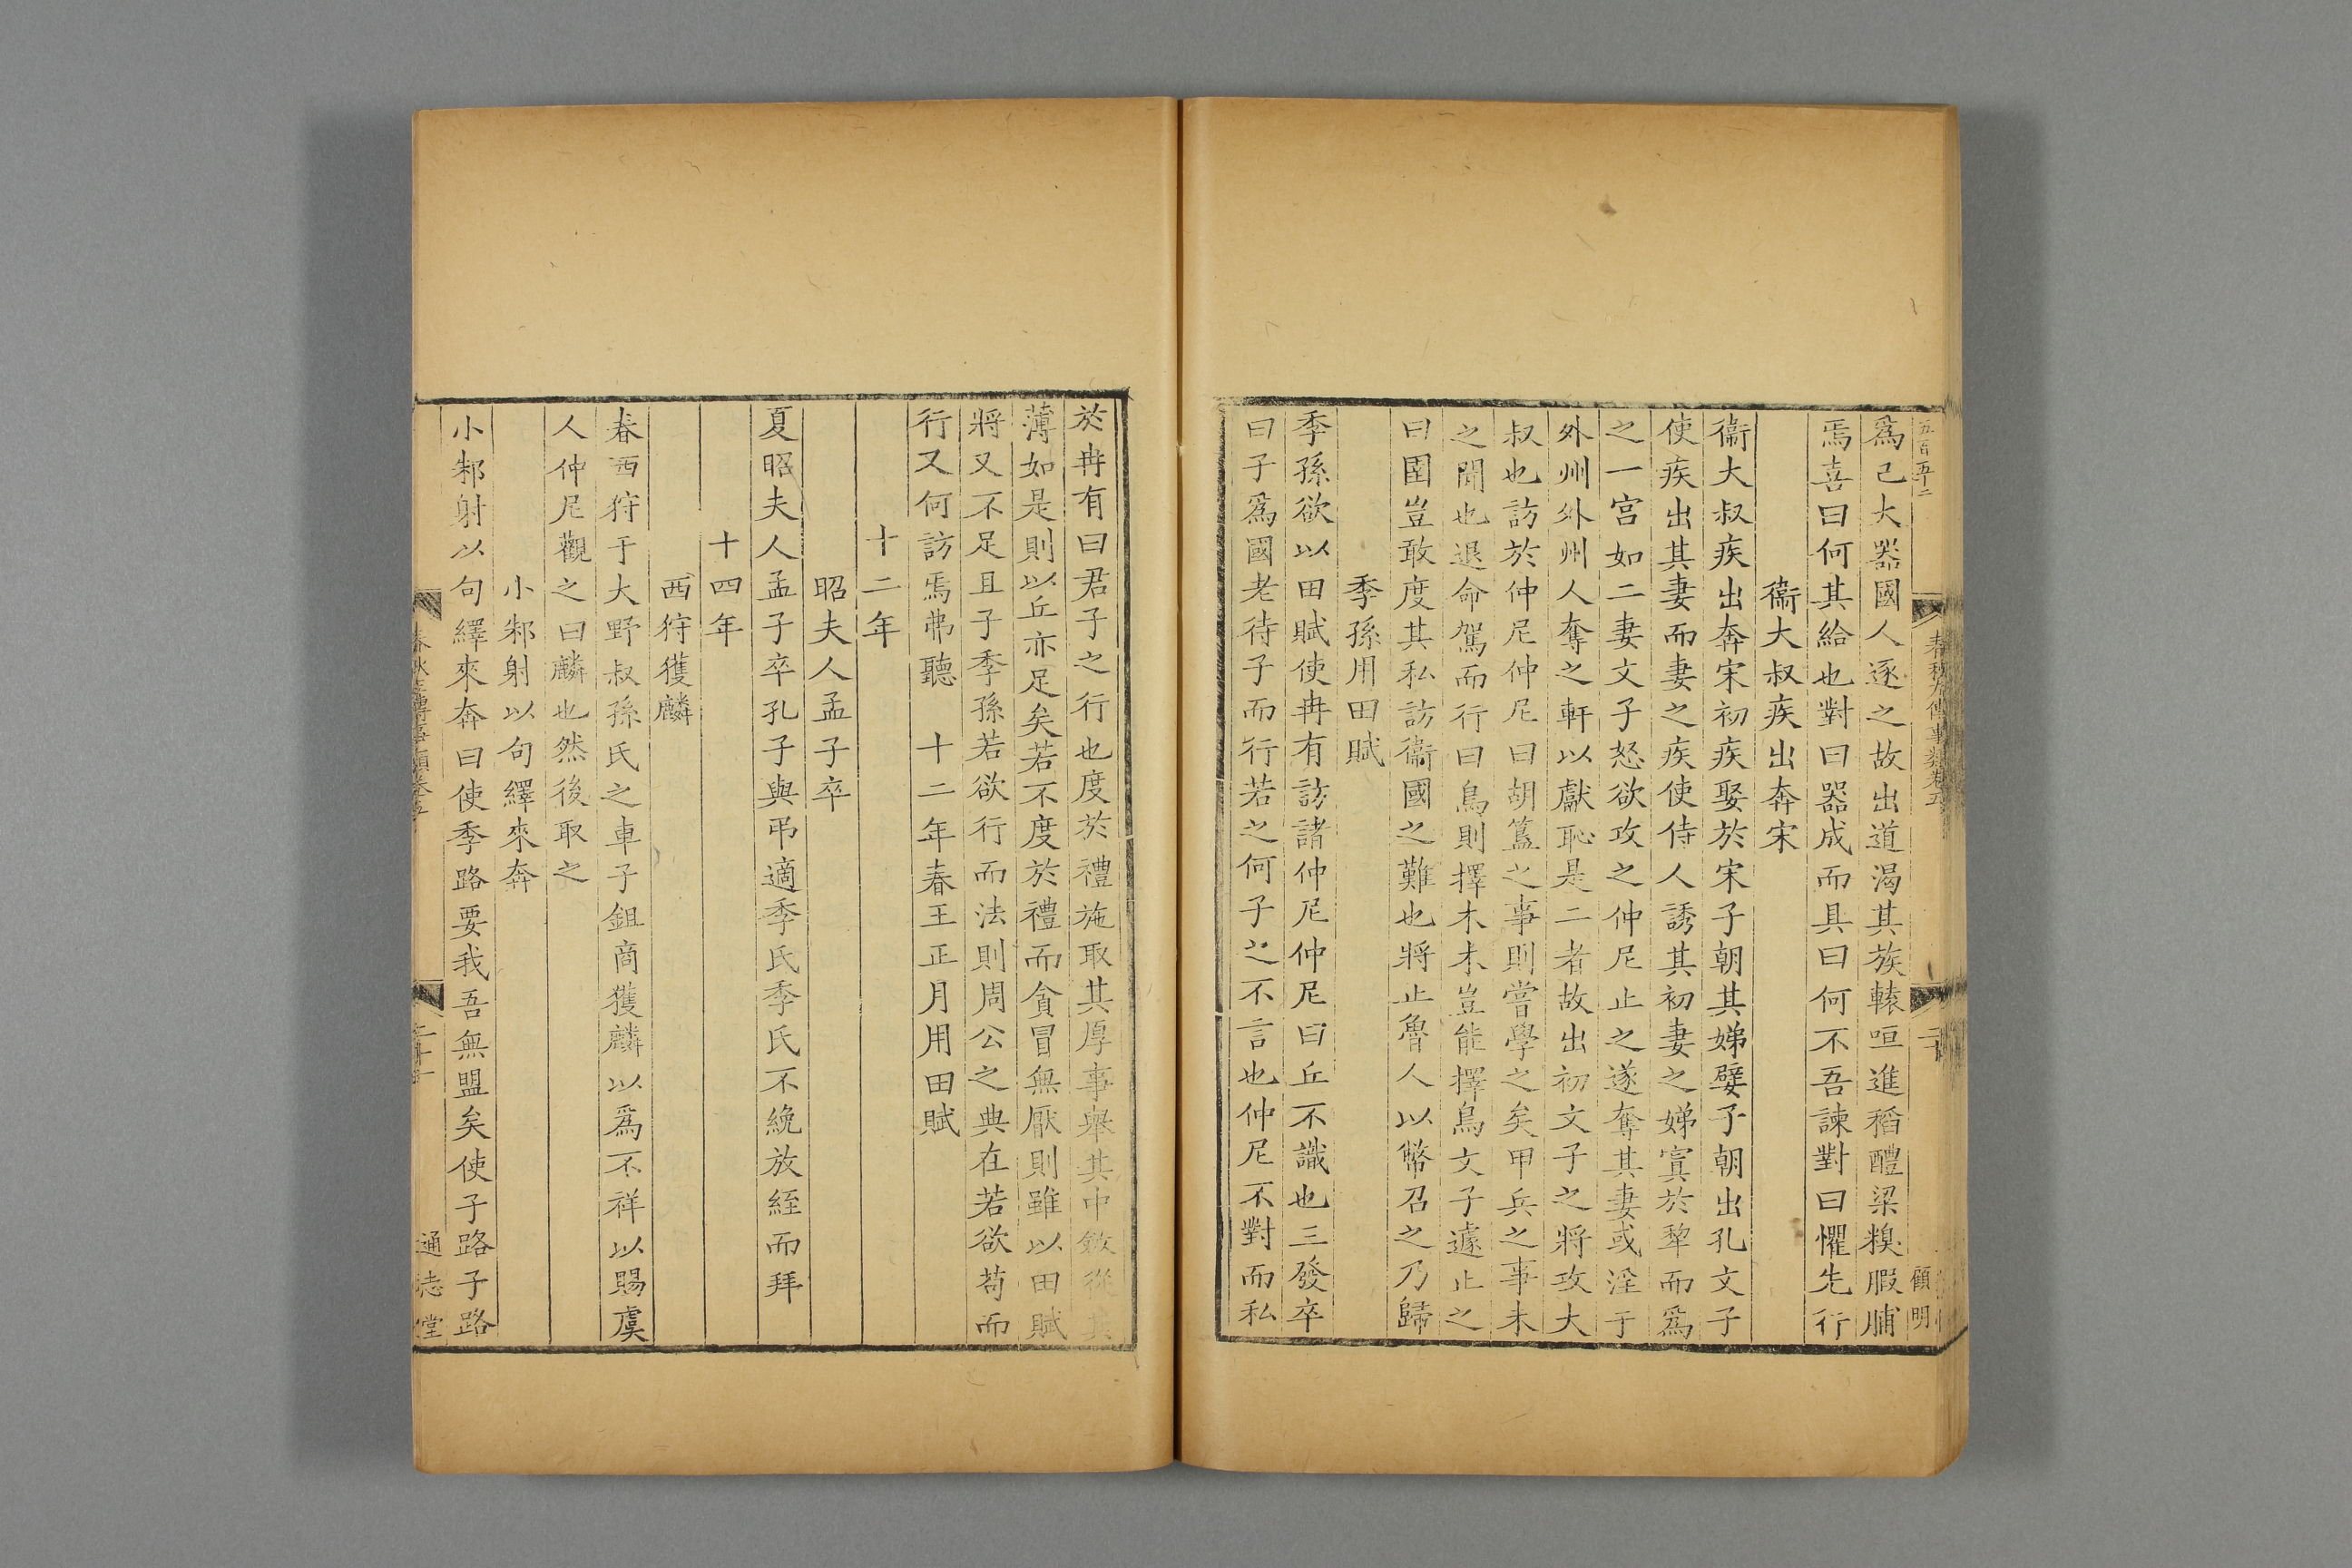 五百五十二
春秋左傳事類卷五
二十
顧明
爲己大器國人逐之故出道渴其族轅咺進稻醴梁糗腶脯
焉喜曰何其給也對曰器成而具曰何不吾諫對曰懼先行
衞大叔疾出奔宋
衞大叔疾出奔宋初疾娶於宋子朝其娣嬖子朝出孔文子
使疾出其妻而妻之疾使侍人誘其初妻之娣寘於犂而爲
之一宫如二妻文子怒欲攻之仲尼止之遂奪其妻或淫于
外州外州人奪之軒以獻恥是二者故出初文子之將攻大
叔也訪於仲尼仲尼曰胡簋之事則嘗學之矣甲兵之事未
之聞也退命駕而行曰鳥則擇木木豈能擇鳥文子遽止之
曰圉豈敢度其私訪衞國之難也將止魯人以幣召之乃歸
季孫用田賦
季孫欲以田賦使冉有訪諸仲尼仲尼曰丘不識也三發卒
曰子爲國老待子而行若之何子之不言也仲尼不對而私
於冉有曰君子之行也度於禮施取其厚事舉其中斂從其
薄如是則以丘亦足矣若不度於禮而貪冒無厭則雖以田賦
將又不足且子季孫若欲行而法則周公之典在若欲苟而
行又何訪焉弗聽　十二年春王正月用田賦
十二年
昭夫人孟子卒
夏昭夫人孟子卒孔子與弔適季氏季氏不絻放絰而拜
十四年
西狩獲麟
春西狩于大野叔孫氏之車子鉏商獲麟以爲不祥以賜虞
人仲尼觀之曰麟也然後取之
小邾射以句繹來奔
小邾射以句繹來奔曰使季路要我吾無盟矣使子路子路
春秋左傳事類卷五
二十一
通志堂